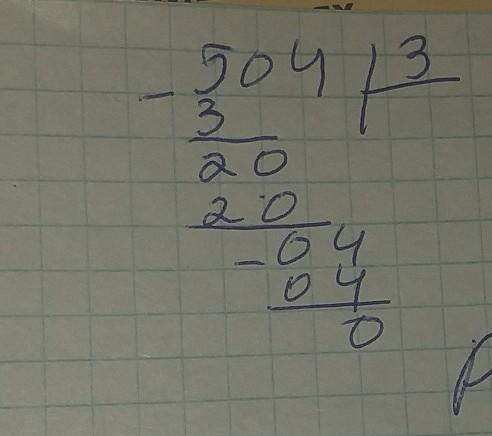 - 504 | 3
3
20
20
- 04
04
0